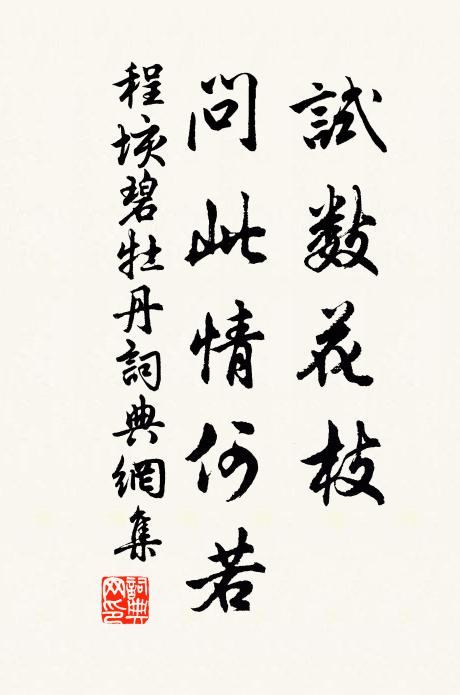 試數花枝
問此情何若
程垓碧牡丹詞典網集
詞典網印